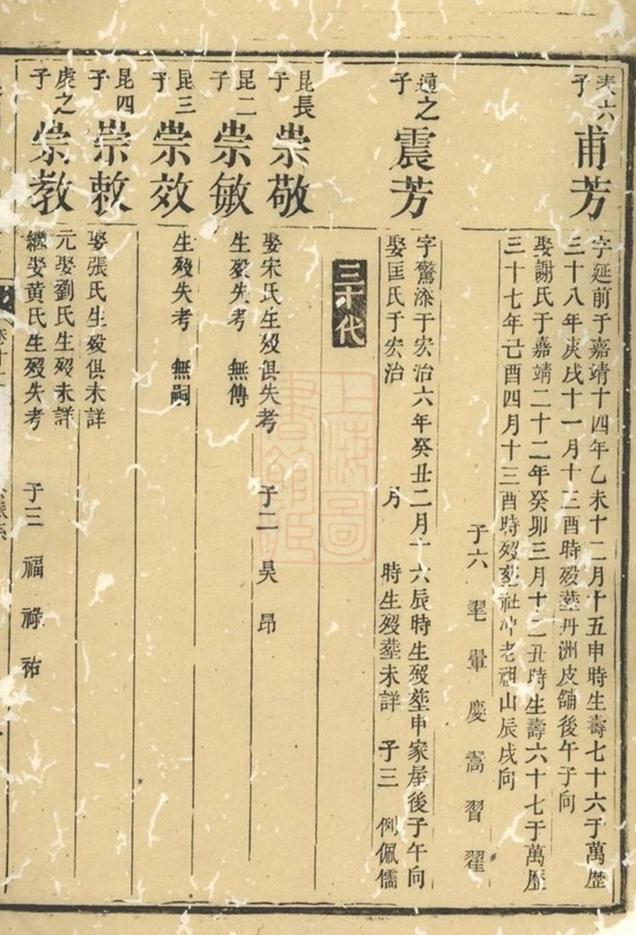 表六子
甫芳
字延前于嘉靖十四年乙未十二月十五申時生壽七十六于萬歷
三十八年庚戌十一月十三酉時殁塟丹洲皮舖後午子向
娶謝氏于嘉靖二十二年癸卯三月十二丑時生壽六十七于萬歷
三十七年己酉四月十三酉時殁塟社冲老祖山辰戌向
子六 翬 慶 嵩 習 翟
通之子
震芳
字驚滛于宏治六年癸丑二月十六辰時生殁塟申家屋後子午向
娶匡氏于宏治 月 時生殁塟未詳 子三 例佩儒
三十代
昆長子
崇敬
娶宋氏生殁俱失考 子二 昊 昂
昆二子
崇敏
生殁失考 無傳
昆三子
崇效
生殁失考 無嗣
昆四子
崇敕
娶張氏生殁俱未詳
虔之子
崇教
元娶劉氏生殁未詳
繼娶黃氏生殁失考 子三 福 祿 祐